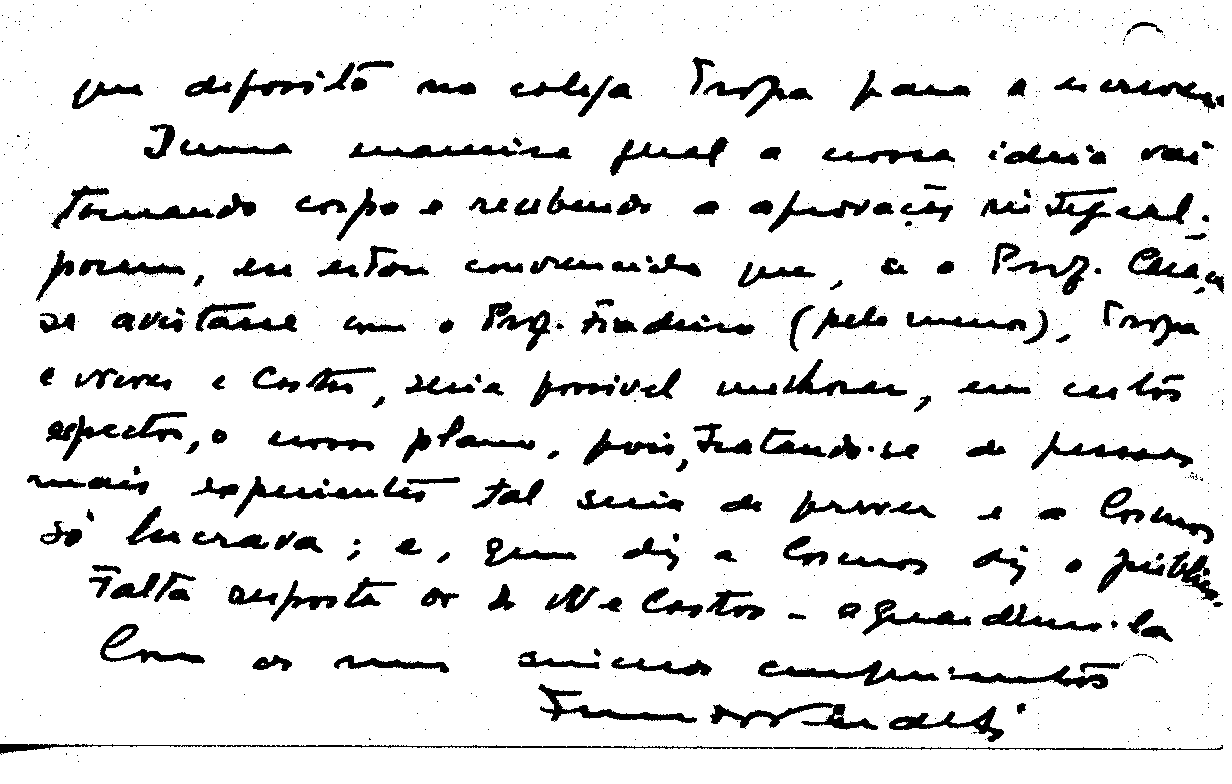 que deposito no colega Tropa para a
Duma maneira geral a nossa ideia vai
tomando corpo e recebendo a aprovação integral;
porem, eu estou convencido que, se o Prof.
se avistasse com o Prof. Fradeiro (pelo menos), Tropa
e Neves e Castro, seria possivel melhorar, em certos
aspectos, o nosso plano, pois, tratando-se de pessoas
mais experientes tal seria de prever e a Cosmos
só lucrava; e, quem diz a Cosmos diz o público.
Falta resposta de N e Castro - aguardemo-la
Com os meus sinceros cumprimentos